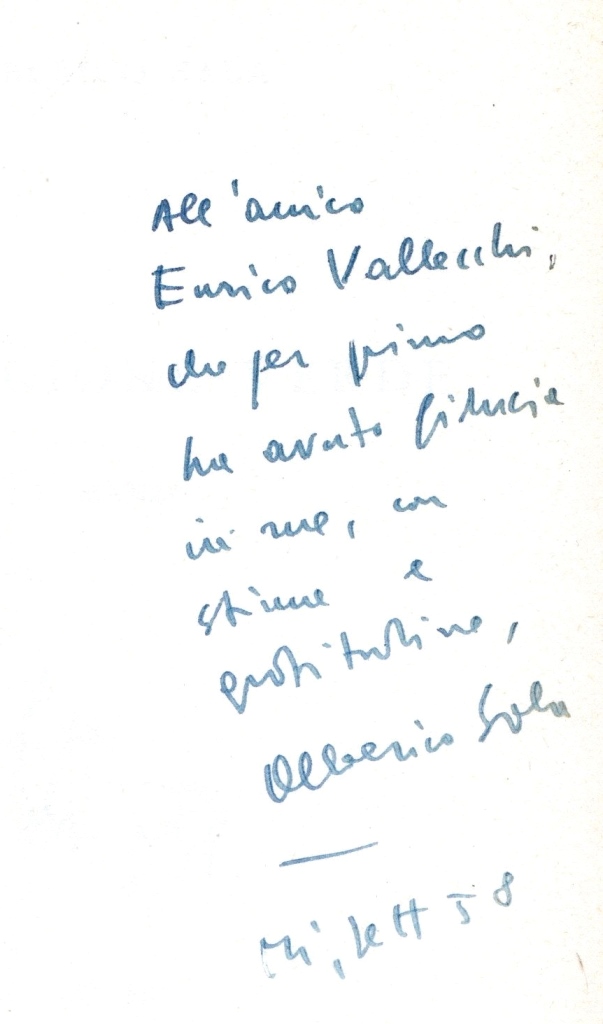 All'amico
Enrico Vallecchi,
che per primo
ha avuto fiducia
in me, con
stima e
gratitudine,
Alberico Sala
Mi, sett 58